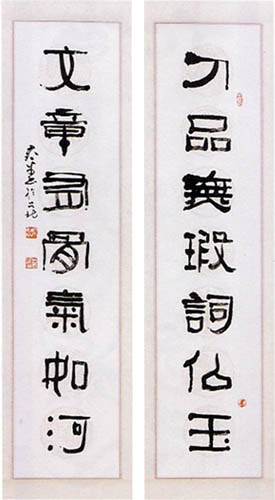 人品無瑕詞佀玉
文章有骨氣如河